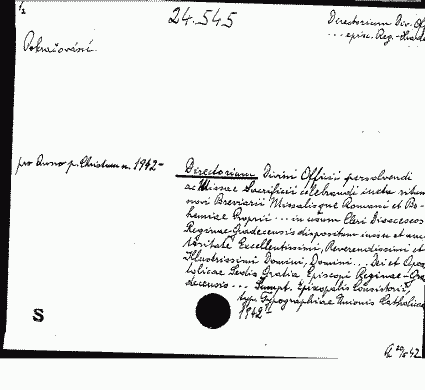 1/2
24.545
Directorium Div. Off
... episc. Reg.-Hrade
Pokračování.
pro Anno p. Christum n. 1942-
Directorium Divini Officii persolvendi
ac Missae Sacrificii celebrandi iuxta ritum
novi Breviarii Missalisque Romani et Bo-
hemiae Proprii ... in usum Cleri Dioeceseos
Reginae-Gradecensis dispositum iussu et auc-
toritate Excellentissimi, Reverendissimi et
Illustrissimi Domini, Domini ... Dei et Apos
tolicae Sedis Gratia Episcopi Reginae-Gra-
decensis ... Sumpt. Episcopalis Consistorii,
typ. Typographiae Unionis Catholicae
1942-
S